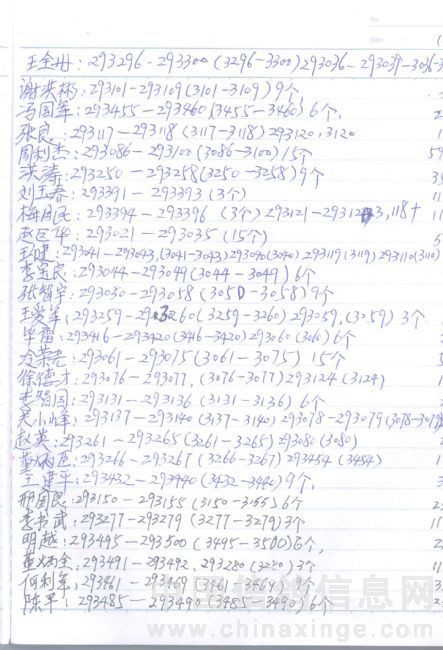 王全册:293296-293300(3296-3300)293036-293039-3036-3
谢洪彬:293101-293109(3101-3109)9个,
冯国军:293455-293460(3455-3460)6个,
张良:293117-293118(3117-3118)293120,3120
周利杰:293086-293100(3086-3100)15个
洪涛:293250-293258(3250-3258)9个
刘玉春:293391-293393(3个)
梅用民:293394-293396(3个)293121-293123,118+
赵巨华:293021-293035(15个)
王健:293041-293043,(3041-3043)293040(3040)293119(3119)293110(3110)
李宝良:293044-293049(3044-3049)6个
张智宇:293050-293058(3050-3058)9个
王爱军:293259-293260(3259-3260)293059,(3059)3个
毕雷:293416-293420(3416-3420)293060(3060)6个
冷荣光:293061-293075(3061-3075)15个
徐德才:293076-293077,(3076-3077)293124(3124)
国:293131-293136(3131-3136)6个
吴小峰:293137-293140(3137-3140)293078-293079(3078-3079)
赵英:293261-293265(3261-3265)293080(3080)
董:293266-293267(3266-3267)293454(3454)
王建平:293432-293440(3432-3440)9个,
邢国民:293150-293155(3150-3155)6个
李书武:293277-293279(3277-3279)3个
明越:293495-293500(3495-3500)6个,
董炳全:293491-293492,293280(3280)3个
何利军:293461-293469(3461-3469)9个
陈平:293485-293490(3485-3490)6个
中国信鸽信息网
www.chinaxinge.com